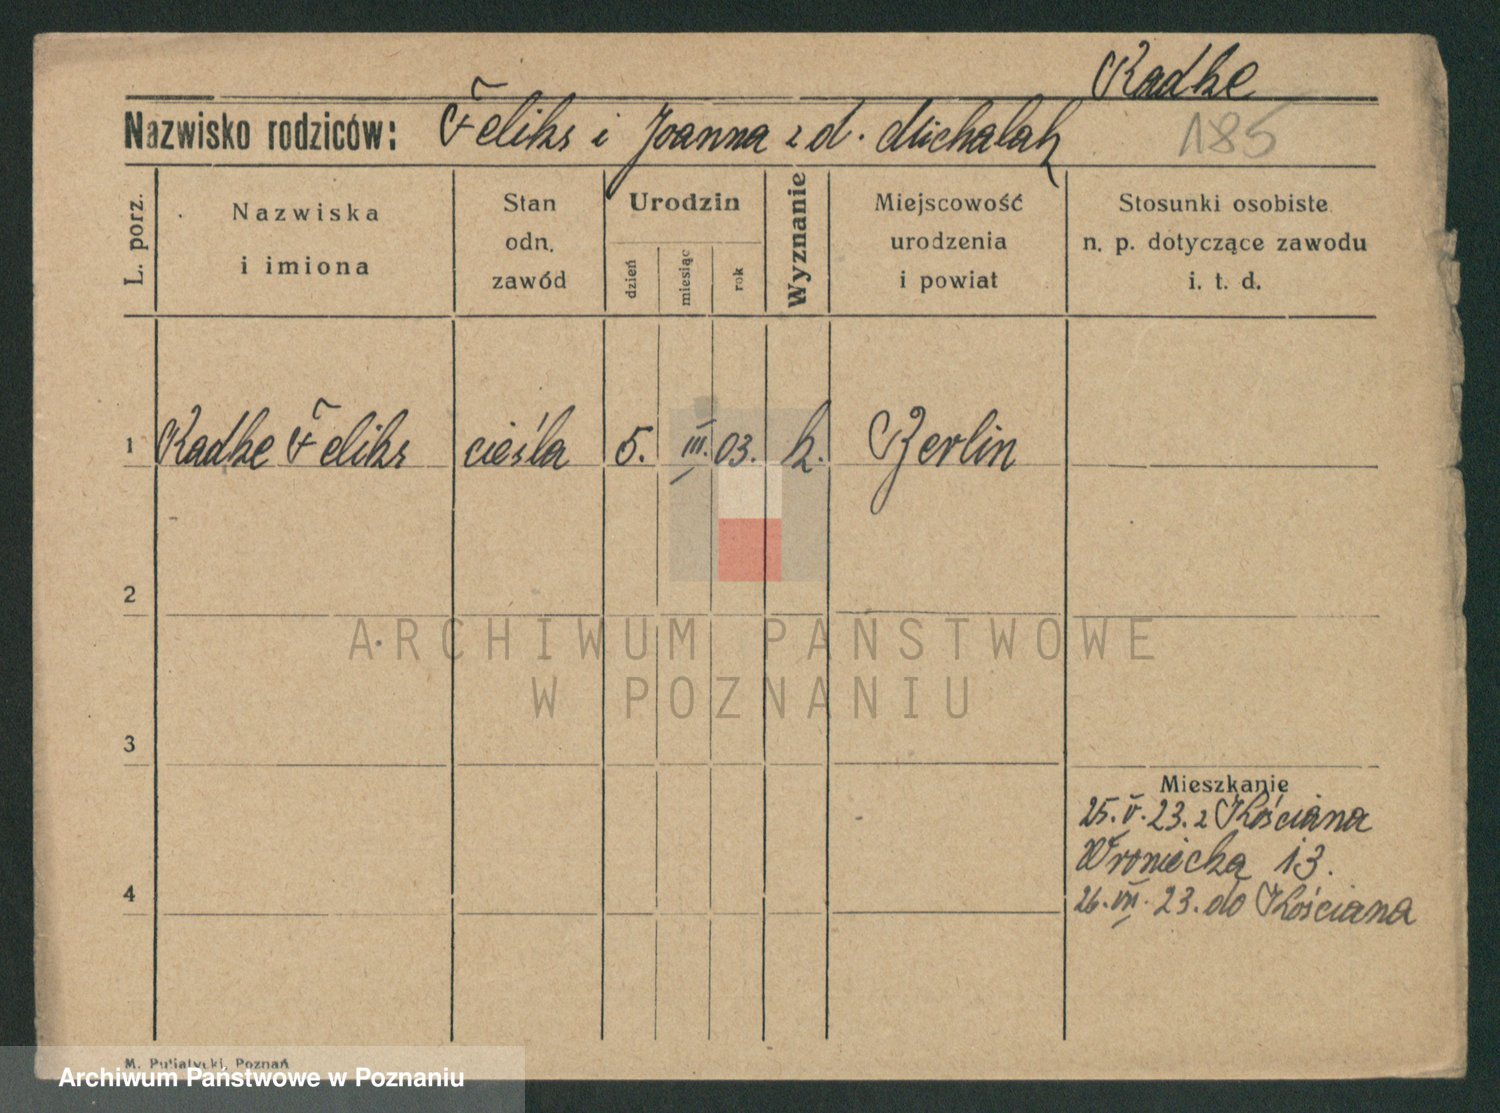 Radke
Nazwisko rodziców: Feliks i Joanna z d. Michalak
185
L. porz.
Nazwiska
i imiona
Stan
odn.
zawód
Urodzin
dzień
miesiąc
rok
Wyznanie
Miejscowość
urodzenia
i powiat
Stosunki osobiste
n. p. dotyczące zawodu
i. t. d.
1 Radke Feliks cieśla 5. III. 03. k. Berlin
2
ARCHIWUM PAŃSTWOWE
W POZNANIU
3
Mieszkanie
25. V. 23. z Kościana
Wroniecka 13.
4
26. VII. 23. do Kościana
M. Putiatycki, Poznań
Archiwum Państwowe w Poznaniu